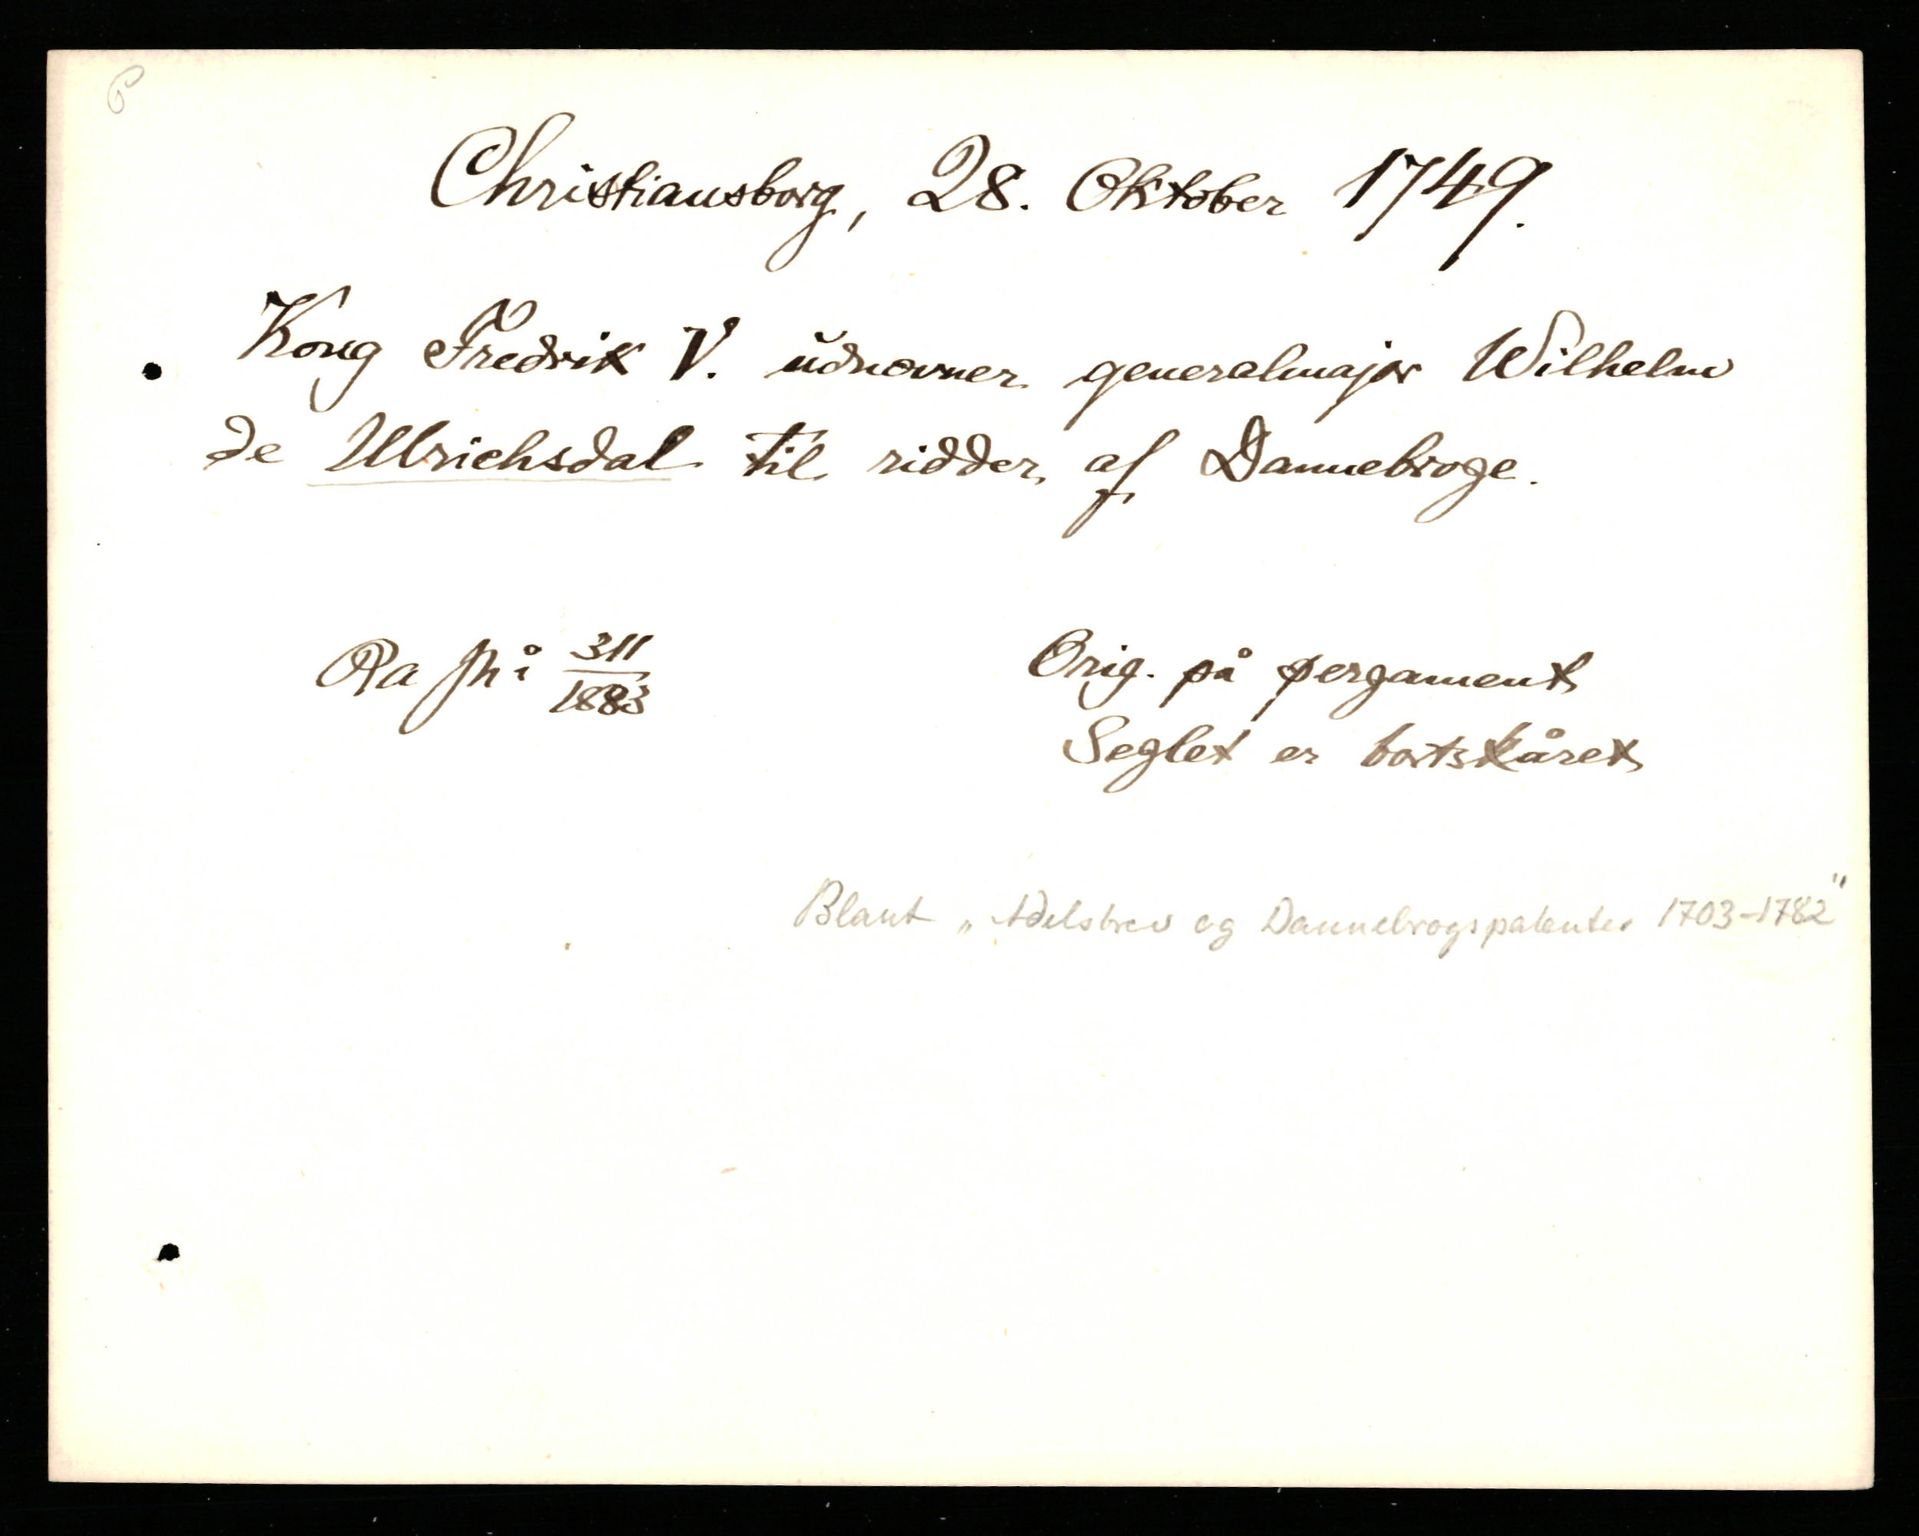 P
Christiansborg, 28. Oktober 1749.
Kong Fredrik V. udnævner generalmajor Wilhelm
de Ulrichsdal til ridder af Dannebroge.
Ra 311/1883
Orig. på pergament
Seglet er bortskåret
Blant „Adelsbrev og Dannebrogspatenter 1703-1782"